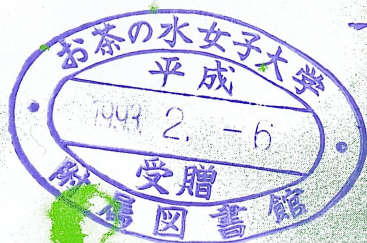 お茶の水女子大学
平成
1993 2. -6
受贈
附属図書館